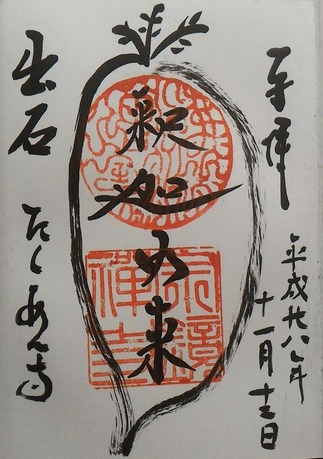 奉拝
平成廿八年
十一月十三日
釈迦如来
宗鏡禅寺
出石 たくあん寺